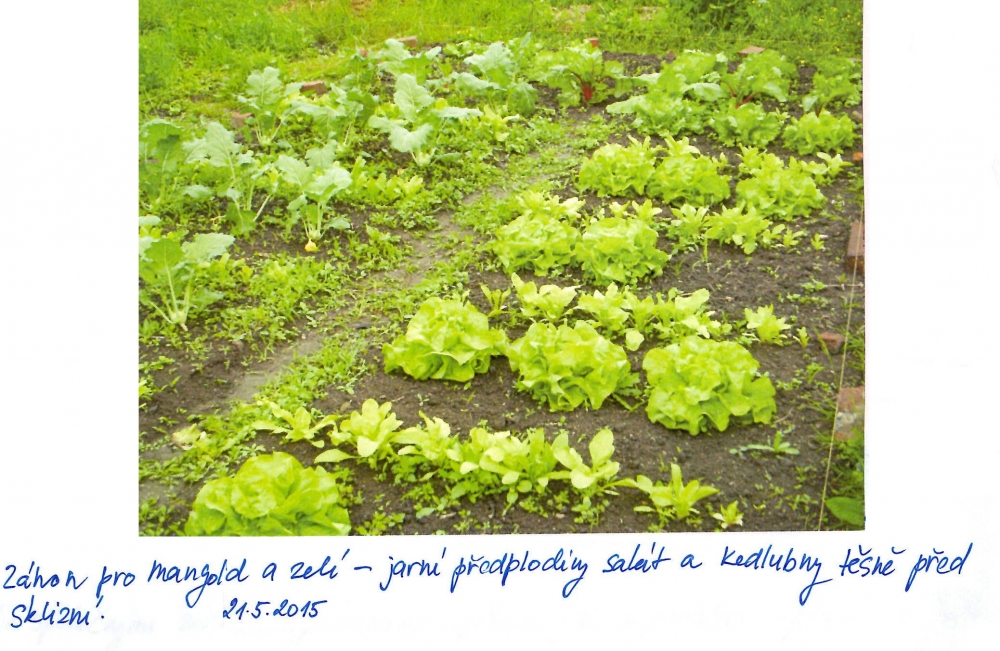 Záhon pro mangold a zelí – jarní předplodiny salát a kedlubny těšně před
sklizní. 21.5.2015